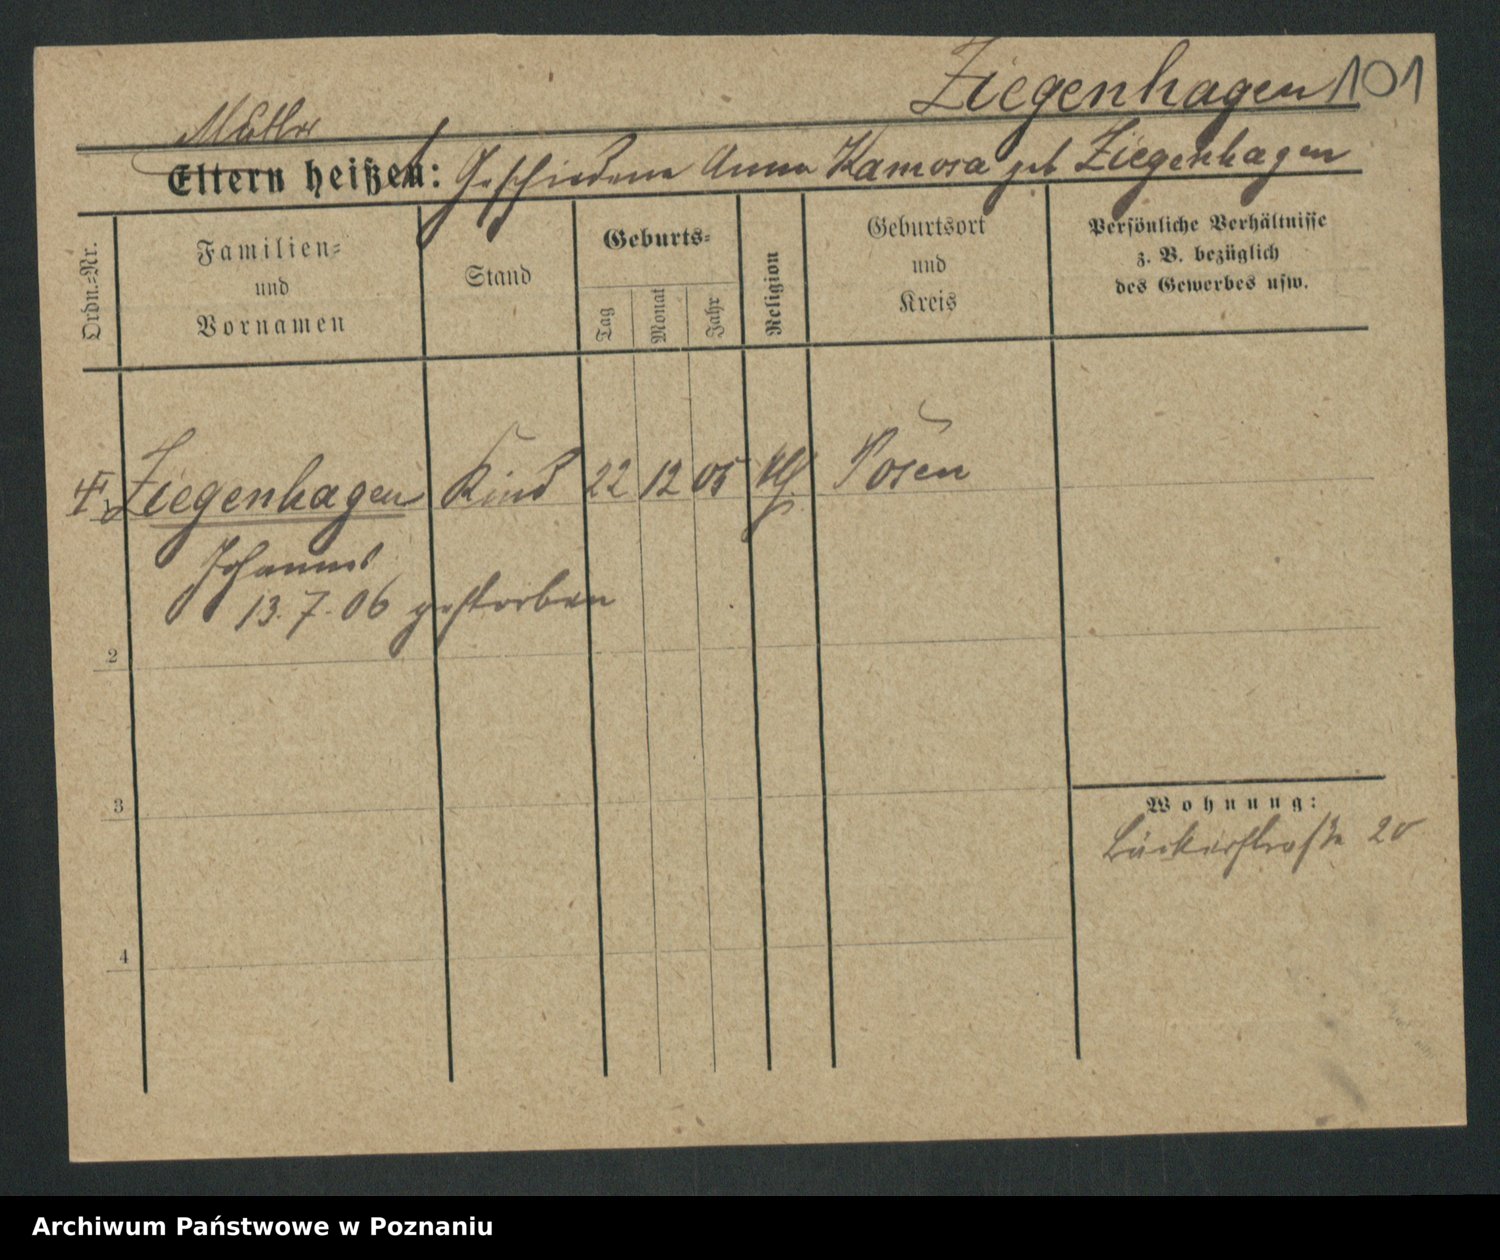 Ziegenhagen 101
Mutter
Eltern heißen: Geschiedene Anna Kamosa geb Ziegenhagen
Ordn.-Nr.
Familien-
und
Vornamen
Stand
Geburts-
Tag
Monat
Jahr
Religion
Geburtsort
und
Kreis
Persönliche Verhältnisse
z. B. bezüglich
des Gewerbes usw.
Ziegenhagen Kind 22 12 05 Posen
Johannes
13. 7. 06 gestorben
2
3
4
Wohnung:
Bäckerstraße 20
Archiwum Państwowe w Poznaniu